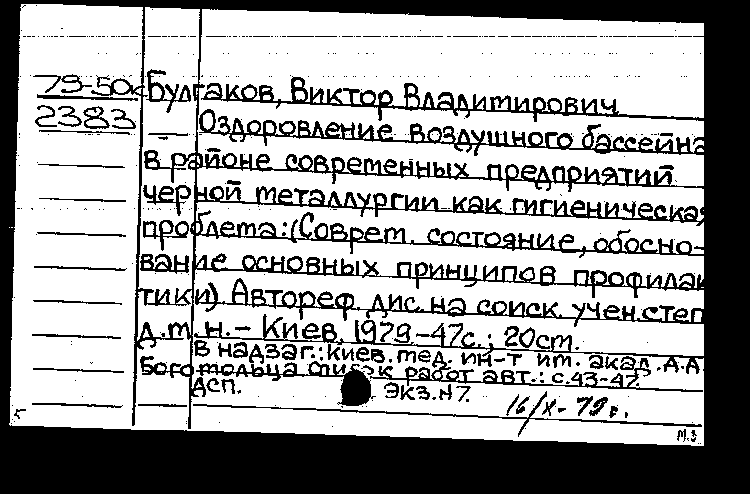 79-50к Булгаков, Виктор Владимирович
2383 Оздоровление воздушного бассейна
в районе современных предприятий
черной металлургии как гигиеническая
проблема: (Соврем. состояние, обосно-
вание основных принципов профилак
тики). Автореф. дис. на соиск. учен. степ
д. м. н. - Киев, 1979 - 47с.; 20см.
В надзаг.: Киев. мед. ин-т им. акад. А.А.
Богомольца Список работ авт.: с.43-47.
ДСП. Экз. №7. 16/X-79г.
М.З